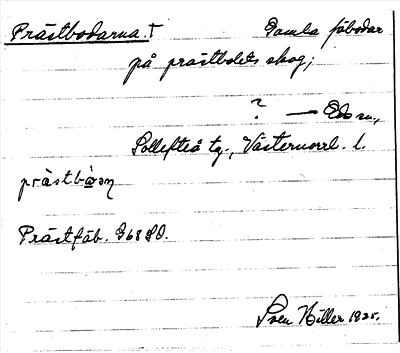 Prästbodarna. T Gamla fäbodar
på prästbolets skog;
? — Eds sn.,
Sollefteå tg., Västernorrl. l.
Prästfäb. G68SO.
Sven Hiller 1935.